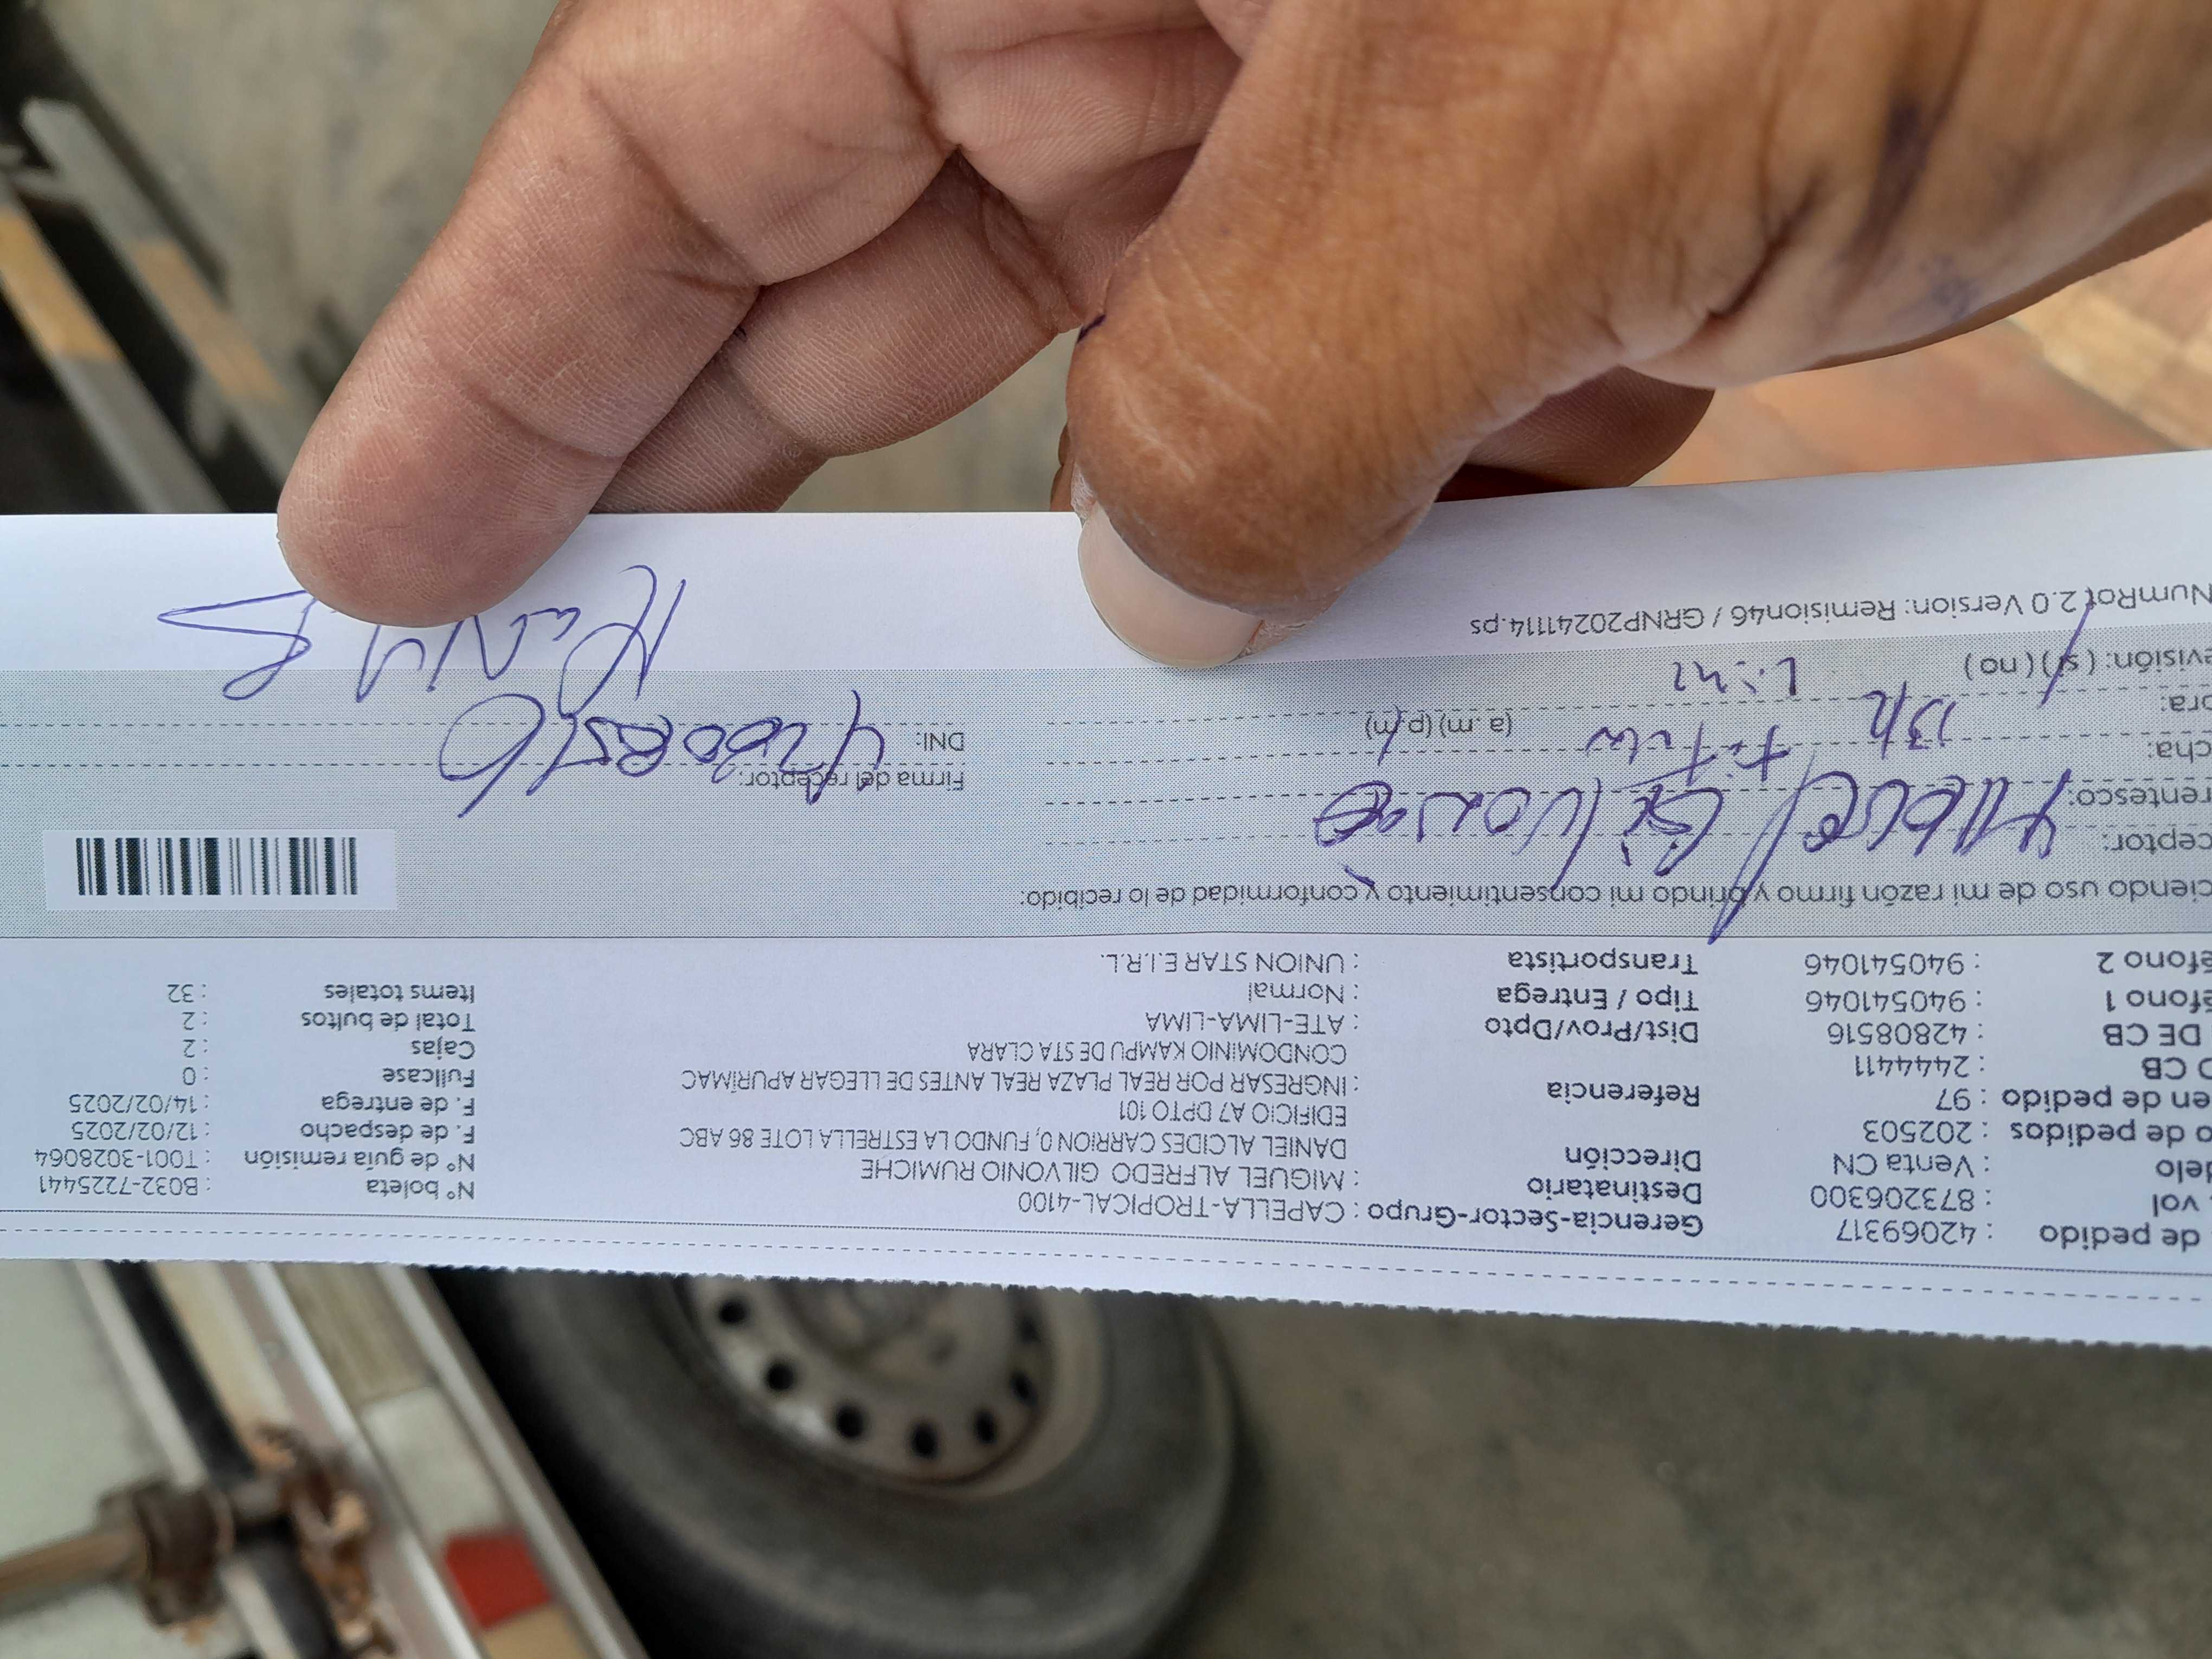 de pedido : 42069317 Gerencia-Sector-Grupo : CAPELLA-TROPICAL-4100 N° boleta : B032-7225441
vol : 873206300 Destinatario : MIGUEL ALFREDO GILVONIO RUMICHE N° de guía remisión : T001-3028064
delo : Venta CN Dirección DANIEL ALCIDES CARRION 0, FUNDO LA ESTRELLA LOTE 86 ABC F. de despacho : 12/02/2025
o de pedidos : 202503 EDIFICIO A7 DPTO 101 F. de entrega : 14/02/2025
en de pedido : 97 Referencia : INGRESAR POR REAL PLAZA REAL ANTES DE LLEGAR APURÍMAC Fullcase : 0
O CB : 2444411 CONDOMINIO KAMPU DE STA CLARA Cajas : 2
DE CB : 42808516 Dist/Prov/Dpto : ATE-LIMA-LIMA Total de bultos : 2
éfono 1 : 940541046 Tipo / Entrega : Normal Items totales : 32
éfono 2 : 940541046 Transportista : UNION STAR E.I.R.L.
ciendo uso de mi razón firmo y brindo mi consentimiento y conformidad de lo recibido:
ceptor: Miguel Gilvonio
rentesco: Firma del receptor:
cha: DNI: 42808516
ora: (a. m) (p. m)
evisión: ( si ) ( no )
NumRot 2.0 Version: Remision46 / GRNP20241114.ps